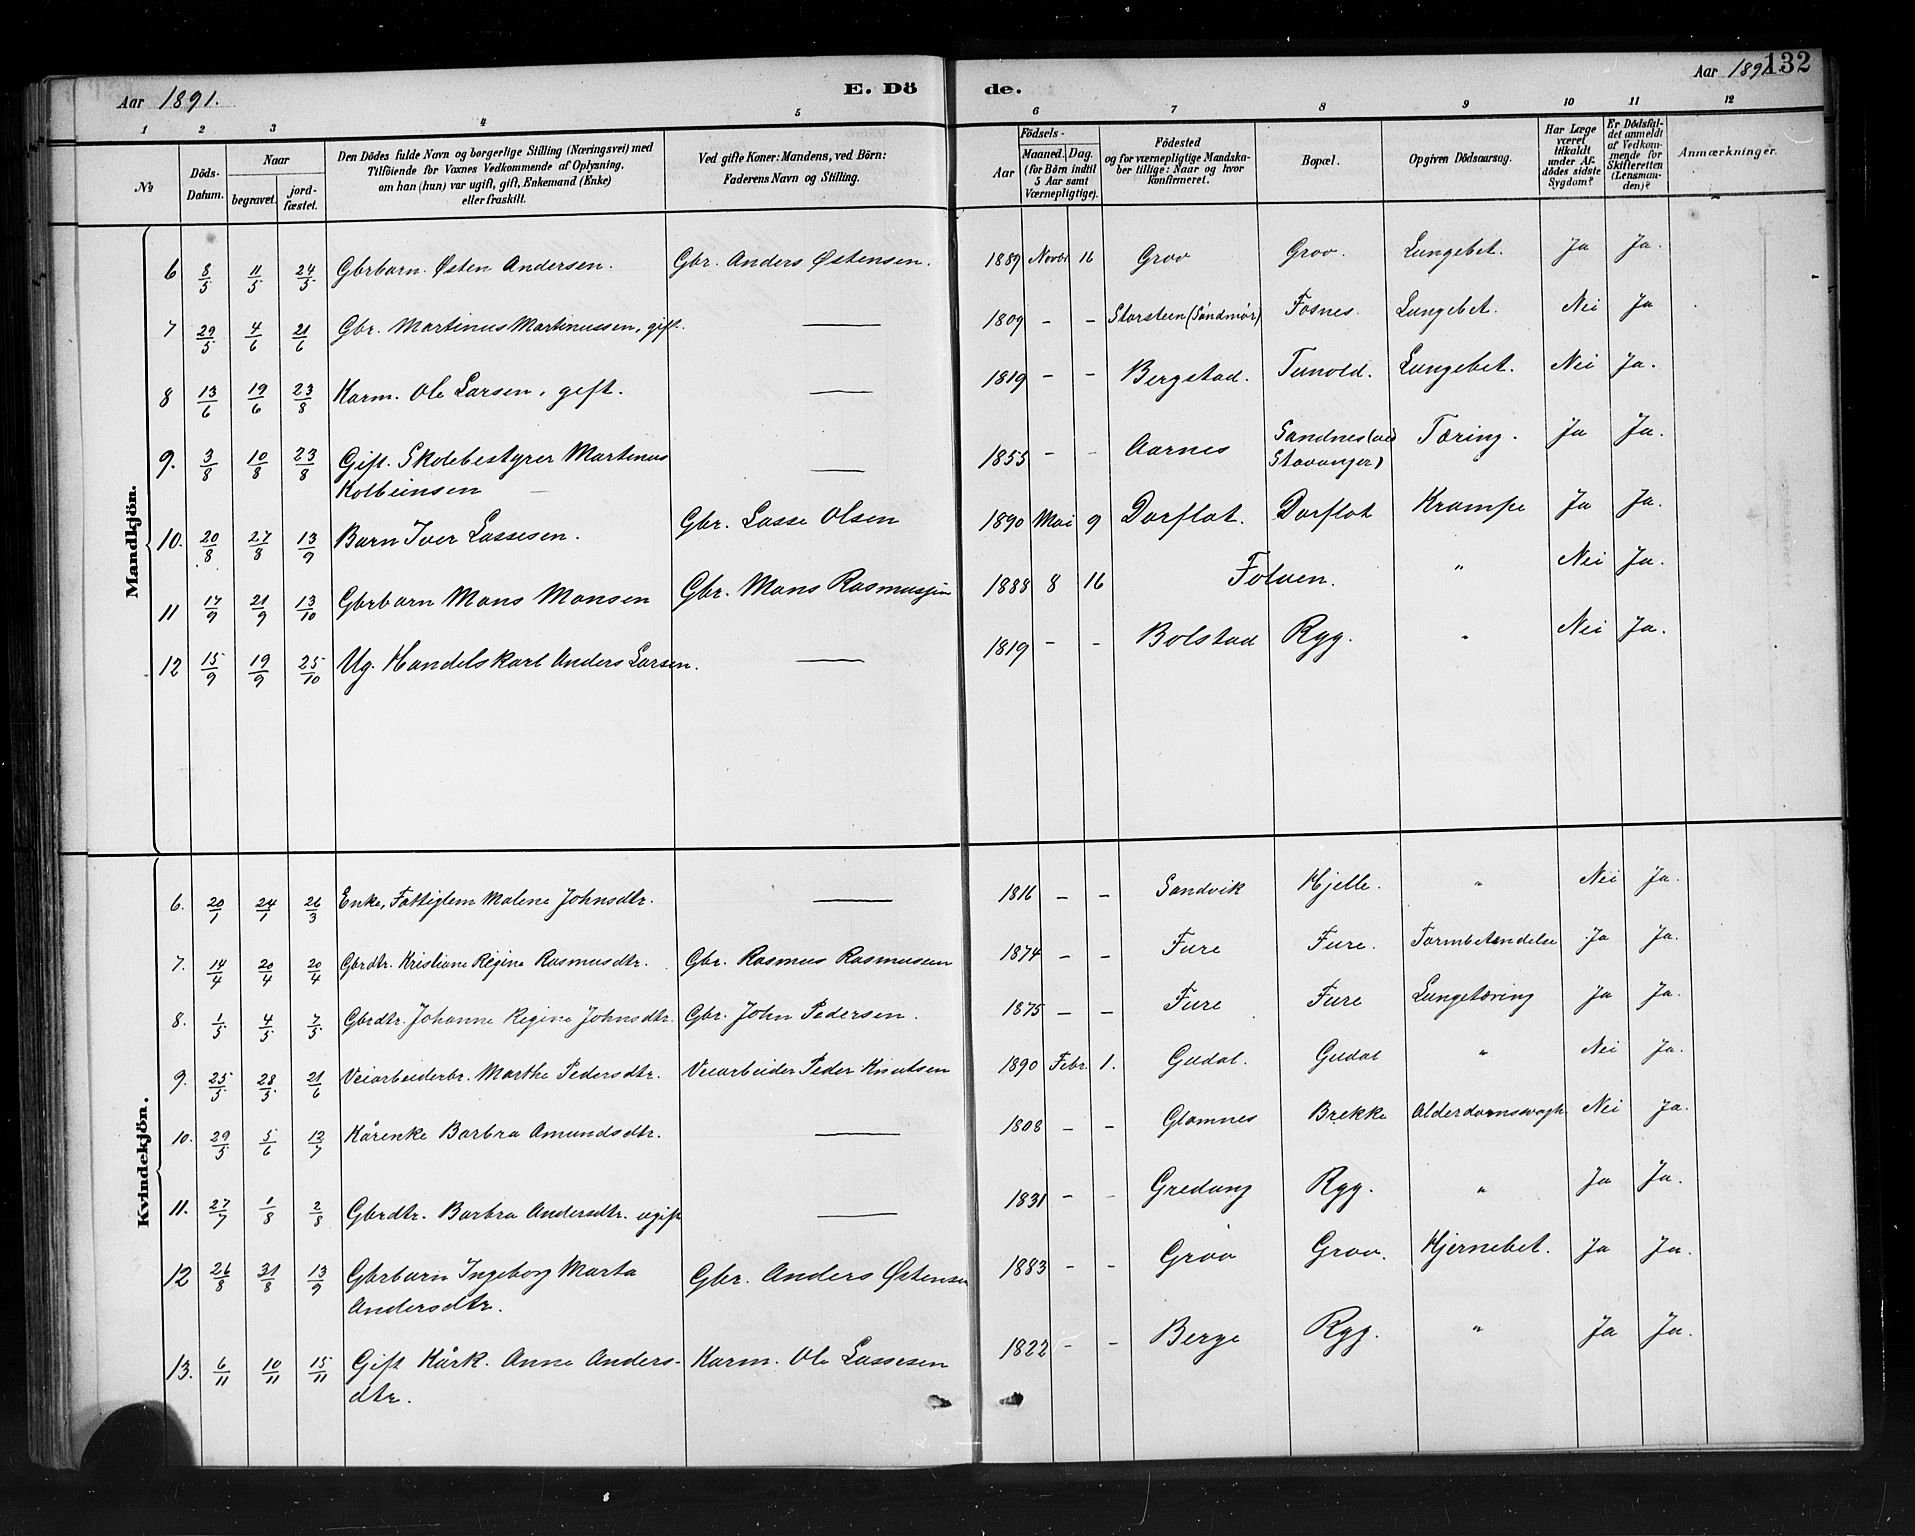 Aar 1891. E. Dö de. Aar 1891. 132
1 2 3 4 5 6 7 8 9 10 11 12
№
Döds-Datum.
Naar
begravet.
jord-fæstet.
Den Dödes fulde Navn og borgerlige Stilling (Næringsvei) med
Tilföiende for Voxnes Vedkommende af Oplysning,
om han (hun) var ugift, gift, Enkemand (Enke)
eller fraskilt.
Ved gifte Koner: Mandens, ved Börn:
Faderens Navn og Stilling.
Födsels-
Aar
Maaned. Dag.
(for Börn indtil
5 Aar samt
Værnepligtige).
Födested
og for værnepligtige Mandska-
ber tillige: Naar og hvor
konfirmeret.
Bopæl.
Opgiven Dödsaarsag.
Har Læge
været
tilkaldt
under Af-
dödes sidste
Sygdom?
Er Dödsfal-
det anmeldt
af Vedkom-
mende for
Skifteretten
(Lensman-
den)?
Anmærkninger.
Mandkjön.
6 8/5 11/5 24/5 Gbrbarn. Østen Andersen. Gbr. Anders Østensen. 1889 Novbr 16 Grov Grov. Lungebet. Ja Ja.
7 29/5 4/6 21/6 Gbr. Martinus Martinussen, gift. — 1809 - - Storsteen (Söndmör) Fosnes. Lungebet. Nei Ja
8 13/6 19/6 23/8 Karm. Ole Larsen, gift. — 1819 - - Bergstad. Tunold. Lungebet. Nei Ja.
9. 3/8 10/8 23/8 Gift. Skolebestyrer Martinus — 1855 - - Aarnes Sandnes (ved Tæring. Ja Ja.
Kolbeinsen Stavanger)
10. 20/8 27/8 13/9 Barn Iver Lassesen. Gbr. Lasse Olsen 1890 Mai 9 Dorflot. Dorflot Krampe Ja Ja.
11 17/9 21/9 13/10 Gbrbarn Mons Monsen Gbr. Mons Rasmussen 1888 8 16 Folven. " Nei Ja.
12 15/9 19/9 25/10 Ug. Handelskarl Anders Larsen. — 1819 - - Bolstad Ryg. " Nei Ja.
Kvindekjön.
6. 20/1 24/1 26/3 Enke, Fattiglem Malene Johnsdtr. — 1816 - - Sandvik Hjelle. " Nei Ja.
7. 14/4 20/4 20/4 Gbrdtr. Kristiane Regine Rasmusdtr. Gbr. Rasmus Rasmussen 1874 - - Fure Fure. Tarmbetændelse Ja Ja.
8. 1/5 4/5 7/5 Gbrdtr. Johanne Regine Johnsdtr. Gbr. John Pedersen. 1875 - - Fure Fure Lungetæring Ja Ja.
9. 25/5 28/5 21/6 Veiarbeiderbr. Marthe Pedersdtr. Veiarbeider Peder Knutsen 1890 Febr. 1. Gudal. Gudal " Nei Ja.
10. 29/5 5/6 12/7 Kårenke Barbra Amundsdtr. — 1808 - - Glomnes Brekke Alderdomssvagh. Nei Ja.
11. 27/7 1/8 2/8 Gbrdtr. Barbra Andersdtr. ugift — 1831 - - Gredung Ryg. " Ja Ja.
12 26/8 31/8 13/9 Gbrbarn Ingeborg Marta Gbr. Anders Østensen 1883 - - Grov Grov. Hjernebet. Ja Ja.
Andersdtr.
13. 6/11 10/11 15/11 Gift Kårk. Anne Anders- Karm. Ole Lassesen 1822 - - Berge Ryg. " Ja Ja.
dtr.